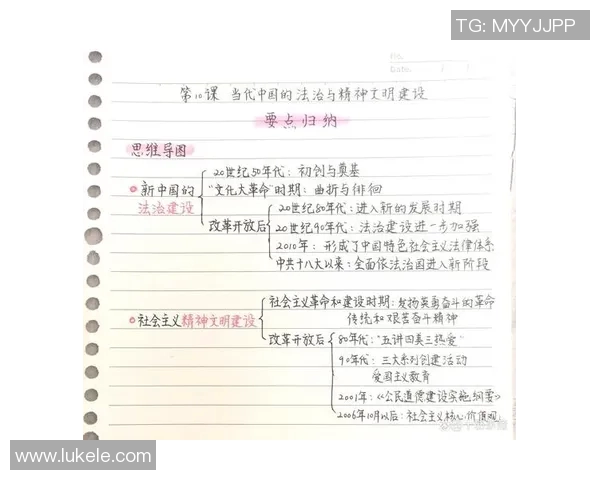 TG: MYYJJPP
No.
Date.
第10课 当代中国的法治与精神文明建设
要点归纳
思维导图
新中国的
法治建设
20世纪50年代：初创与奠基
"文化大革命"时期：曲折与徘徊
改革开放后
20世纪80年代：进入新的发展时期
20世纪90年代：法治建设进一步加强
2010年：形成了中国特色社会主义法律体系
中共十八大以来：全面依法治国进入新阶段
社会主义精神文明建设
社会主义革命和建设时期：发扬英勇奋斗的革命
传统和艰苦奋斗精神
改革开放后
80年代："五讲四美三热爱"
90年代：三大系列创建活动
爱国主义教育
2001年：《公民道德建设实施纲要》
2006年10月以后：社会主义核心价值观
www.lukele.com